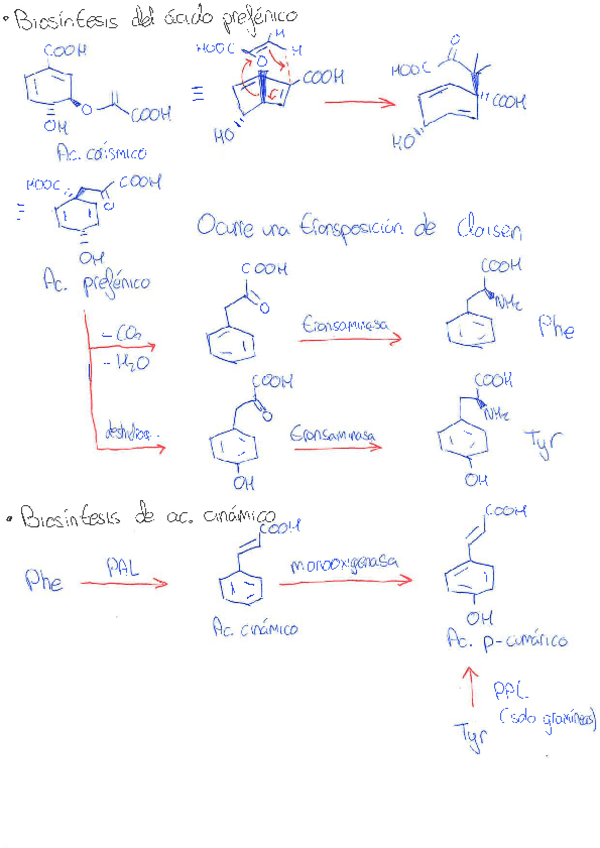 • Biosíntesis del ácido prefénico
COOH
O
COOH
OH
Ac. corísmico
≡
HOOC
H
H
O
COOH
HO
O
HOOC
COOH
HO
≡
HOOC
COOH
O
OH
Ac. prefénico
Ocurre una transposición de Claisen
- CO₂
- H₂O
COOH
O
transaminasa
COOH
NH₂
Phe
COOH
O
OH
transaminasa
COOH
NH₂
OH
Tyr
• Biosíntesis de ac. cinámico
Phe
PAL
COOH
Ac. cinámico
monooxigenasa
COOH
OH
Ac. p-cumárico
PAL
(solo gramíneas)
Tyr